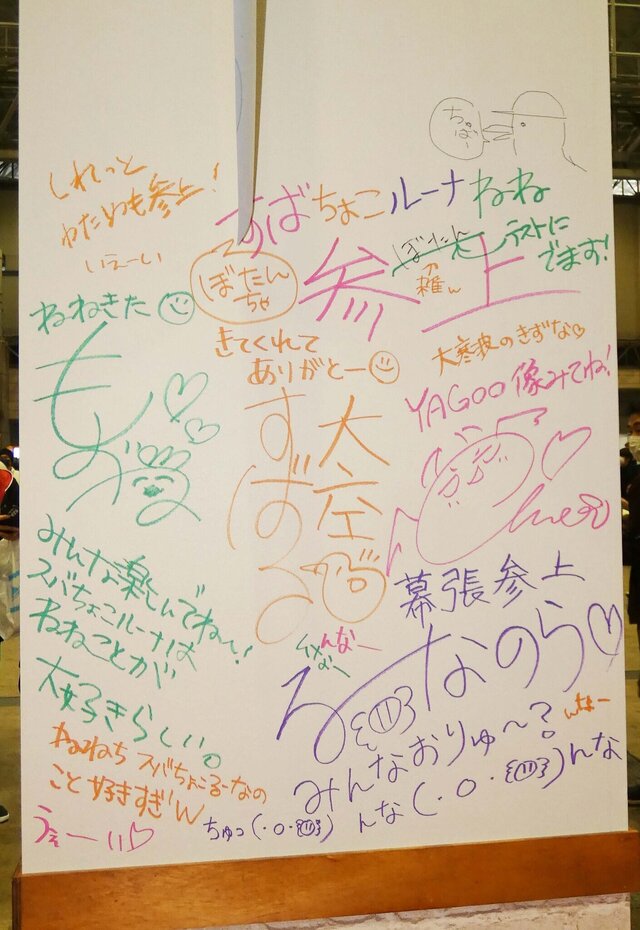 ちゅばー
しれっと
わためも参上!
いえーい
すばちょこルーナねね
参上
ぼたん
↑
雑w
テストに
でます!
ぼたん
ちゃ
ねねきた
きてくれて
ありがとー
大寒波のきずな♡
YAGOO像みてね!
大空
すばる
みんな楽しんでねー!
スバちょこルーナは
ねねことが
大好きらしい。
幕張参上
んなー
んなー
るーなのら♡
みんなおりゅ~?
んなー
んな(・o・)んな
ちゅっ(・o・)
ねねち スバちょこるーなの
こと好きすぎw
うぇーい♡